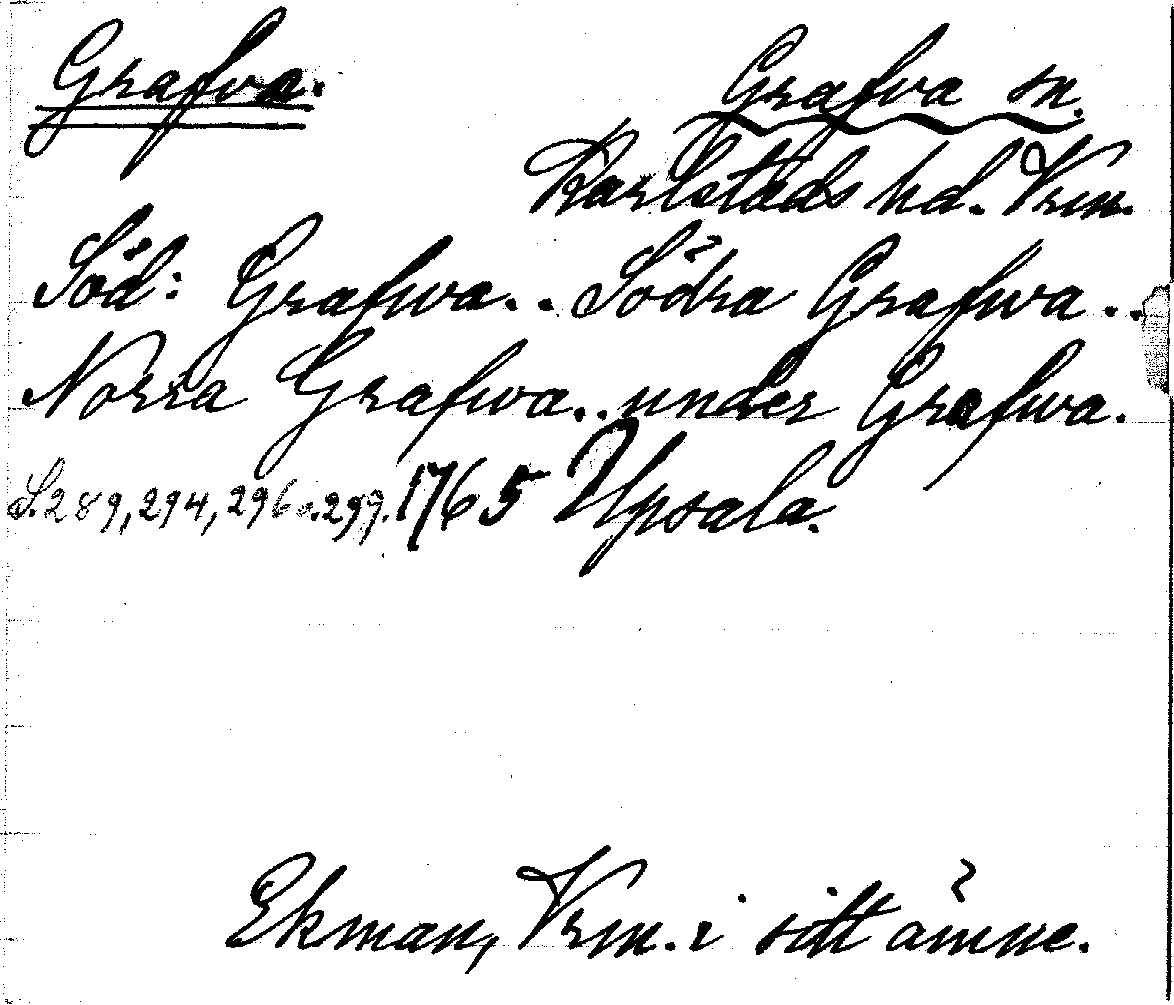 Grafva. Grafva sn.
Karlstads hd. Vrm.
Söd: Grafwa.. Södra Grafwa..
Norra Grafwa.. under Grafwa.
S. 289, 294, 296 o. 299. 1765 Upsala.
Ekman, Vrm. i sitt ämne.